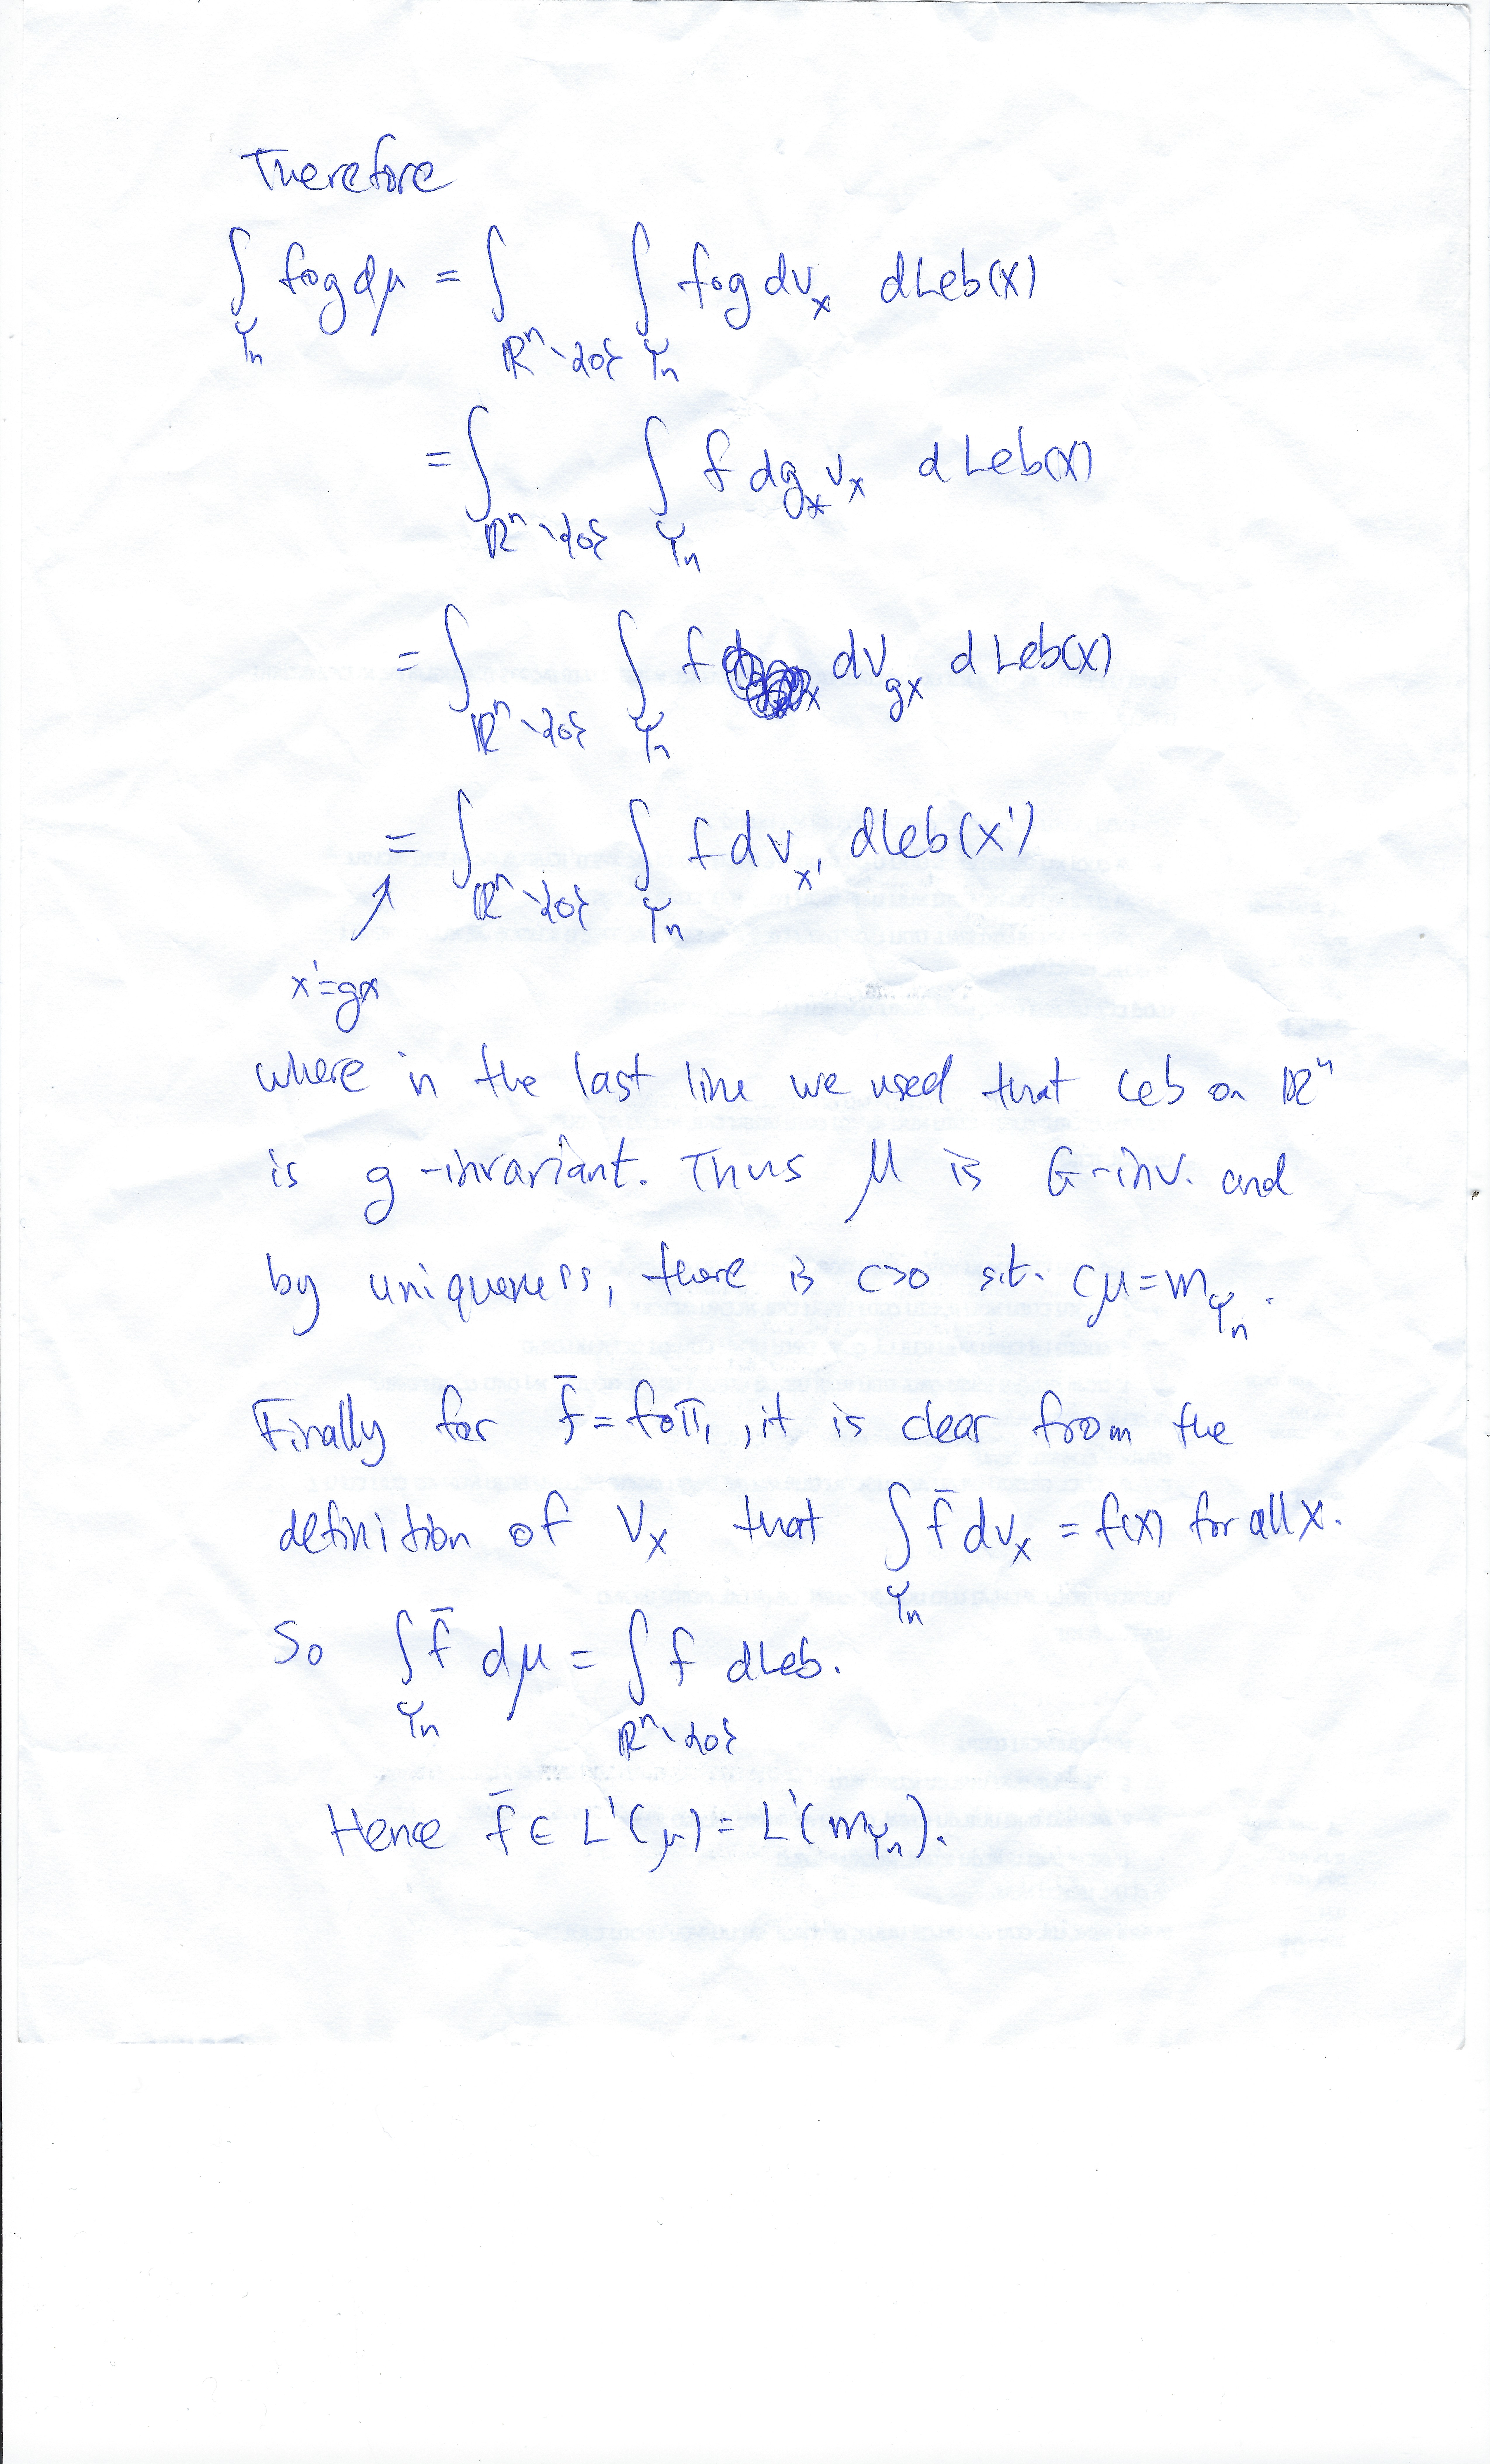 Therefore
∫_{Y_n} f∘g dμ = ∫_{ℝⁿ∖{0}} ∫_{Y_n} f∘g dν_x dLeb(x)
= ∫_{ℝⁿ∖{0}} ∫_{Y_n} f dg_*ν_x dLeb(x)
= ∫_{ℝⁿ∖{0}} ∫_{Y_n} f dν_{gx} dLeb(x)
= ∫_{ℝⁿ∖{0}} ∫_{Y_n} f dν_{x'} dLeb(x')
x'=gx
where in the last line we used that Leb on ℝⁿ
is g-invariant. Thus μ is G-inv. and
by uniqueness, there is c>0 s.t. cμ=m_{Y_n}.
Finally for f̄ = f∘π₁, it is clear from the
definition of ν_x that ∫_{Y_n} f̄ dν_x = f(x) for all x.
So ∫_{Y_n} f̄ dμ = ∫_{ℝⁿ∖{0}} f dLeb.
Hence f̄ ∈ L¹(μ) = L¹(m_{Y_n}).